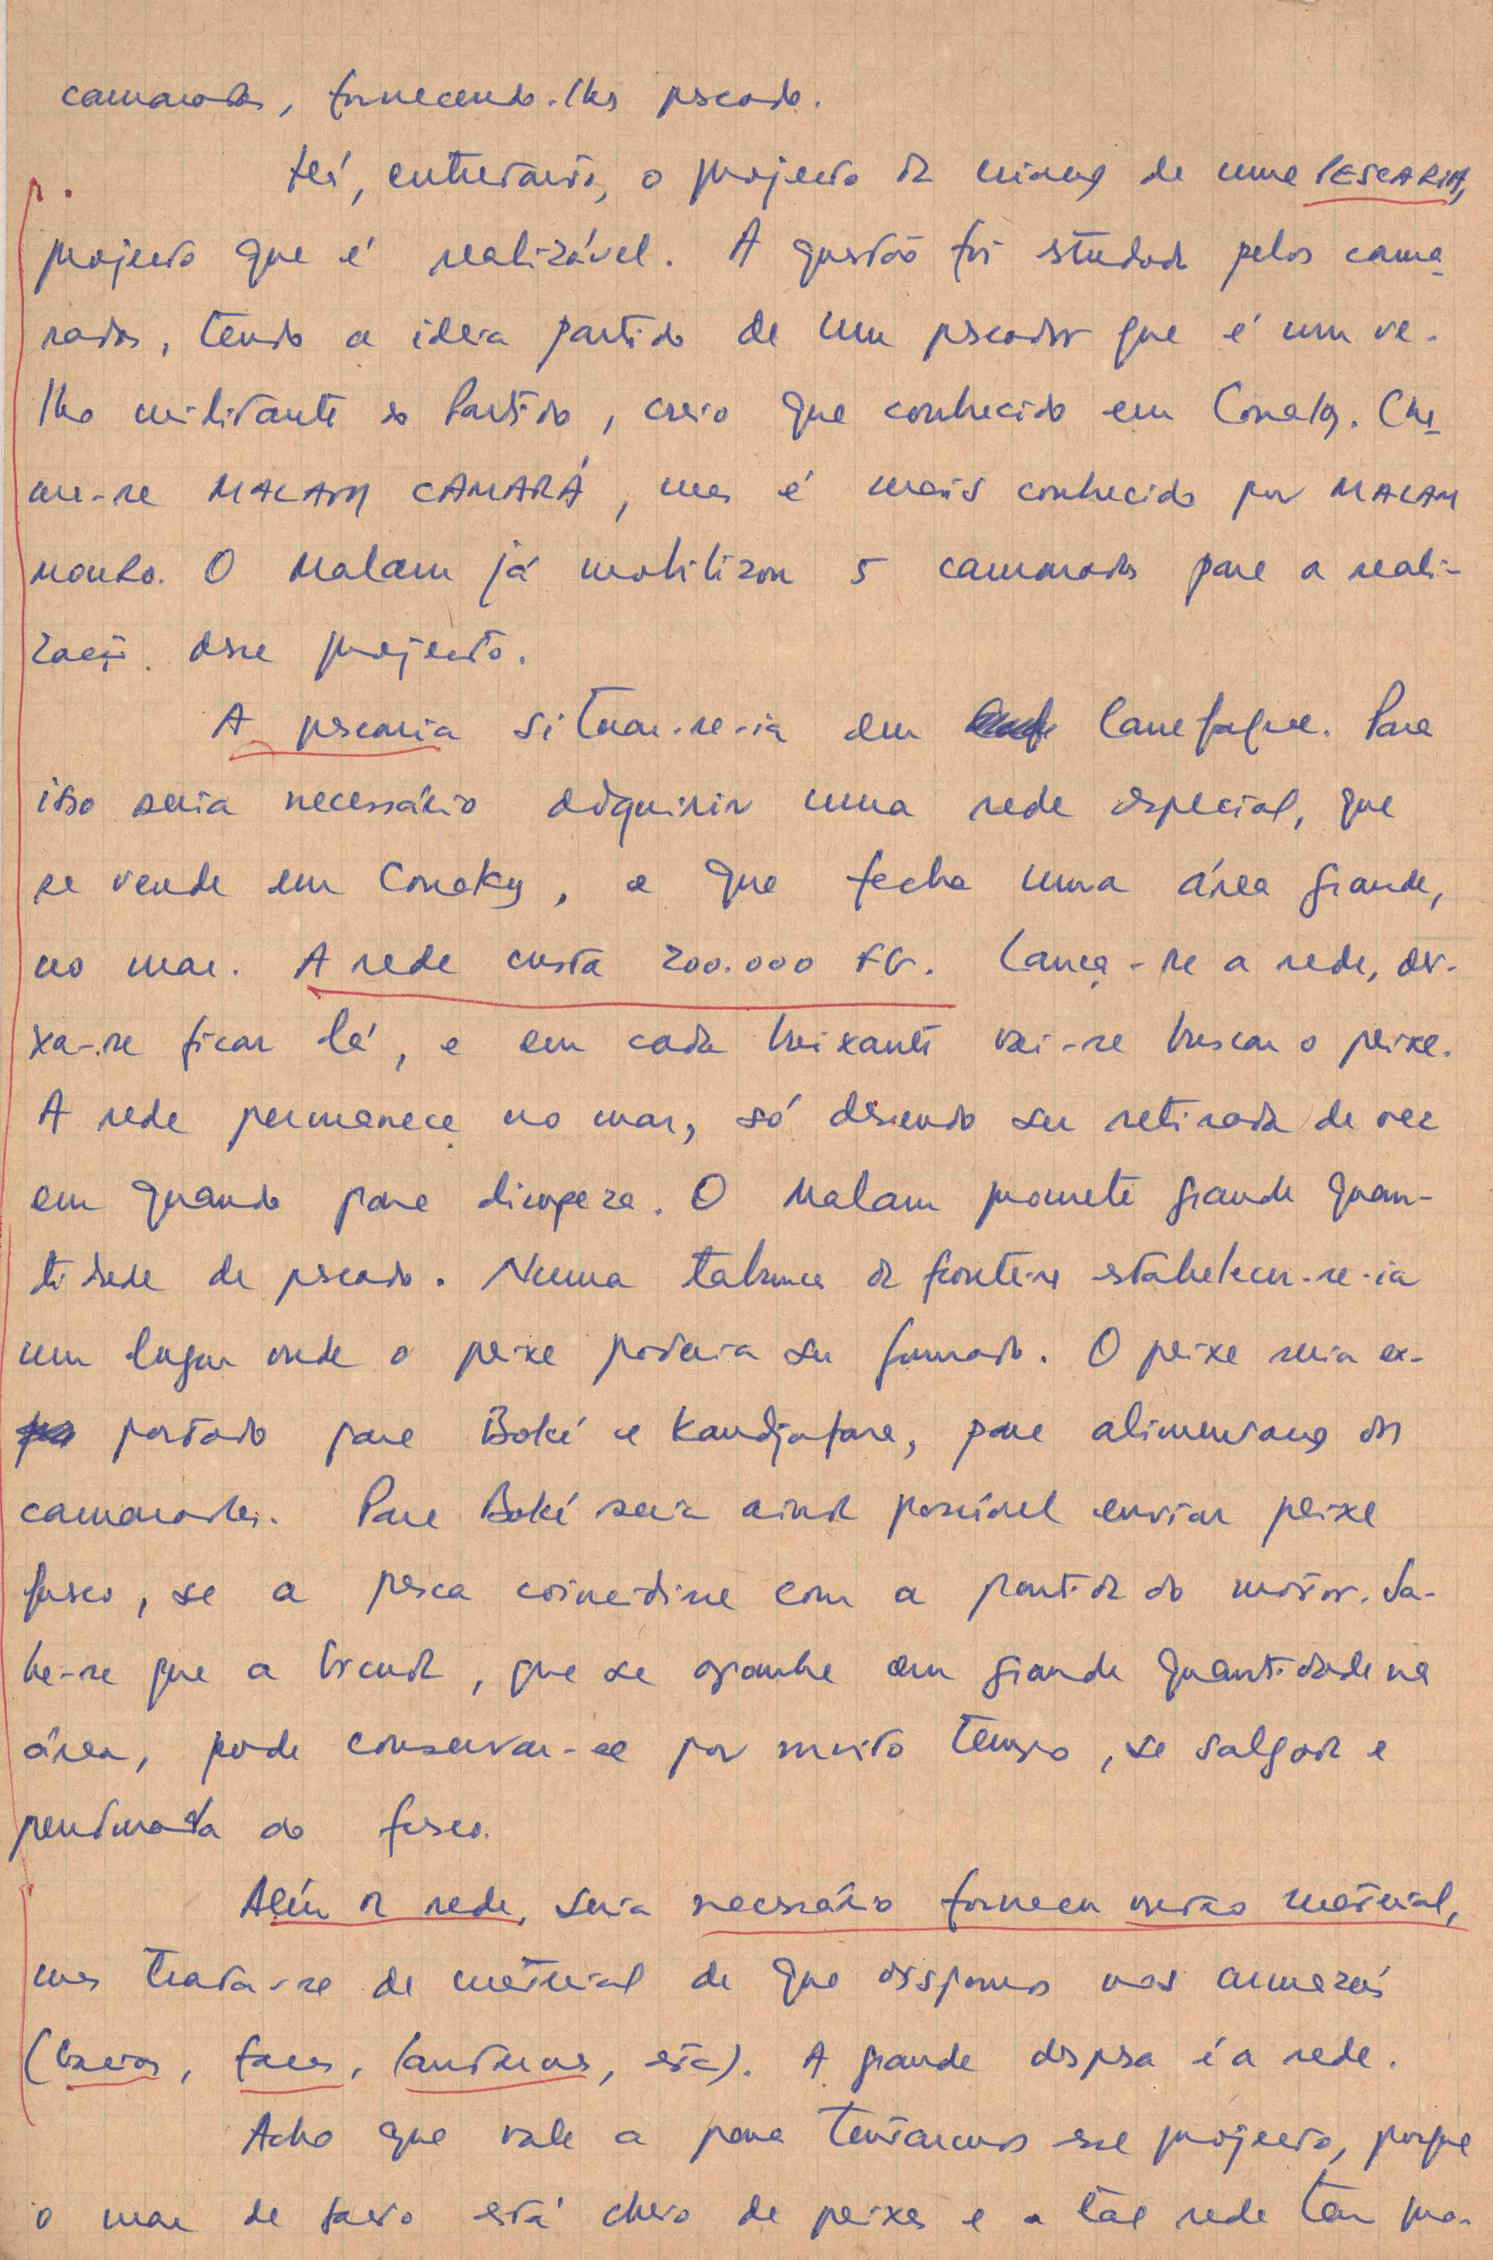 camaradas, fornecendo-lhes pescado.
Há, entretanto, o projecto da criação de uma PESCARIA,
projecto que é realizável. A questão foi estudada pelos cama-
radas, tendo a ideia partido de um pescador que é um ve-
lho militante do Partido, creio que conhecido em Conakry. Cha-
ma-se MALAM CAMARÁ, mas é mais conhecido por MALAM
. O Malam já mobilizou 5 camaradas para a reali-
zação desse projecto.
A pescaria situar-se-ia em Canefaque. Para
isso seria necessário adquirir uma rede especial, que
se vende em Conakry, e que fecha uma área grande,
no mar. A rede custa 200.000 FG. Lança-se a rede, dei-
xa-se ficar lá, e em cada baixante vai-se buscar o peixe.
A rede permanece no mar, só devendo ser retirada de vez
em quando para limpeza. O Malam promete grande quan-
tidade de pescado. Numa tabanca da fronteira estabelecer-se-ia
um lugar onde o peixe poderia ser fumado. O peixe seria ex-
portado para Boké e Kandjafara, para alimentação dos
camaradas. Para Boké seria ainda possível enviar peixe
fresco, se a pesca coincidisse com a partida do motor. Sa-
be-se que a bicuda, que se apanha em grande quantidade na
área, pode conservar-se por muito tempo, se salgada e
pendurada ao fresco.
Além da rede, seria necessário fornecer outro material,
mas trata-se de material de que dispomos nos armazéns
(, facas, lanternas, etc). A grande despesa é a rede.
Acho que vale a pena tentarmos esse projecto, porque
o mar de facto está cheio de peixes e a tal rede tem pro-